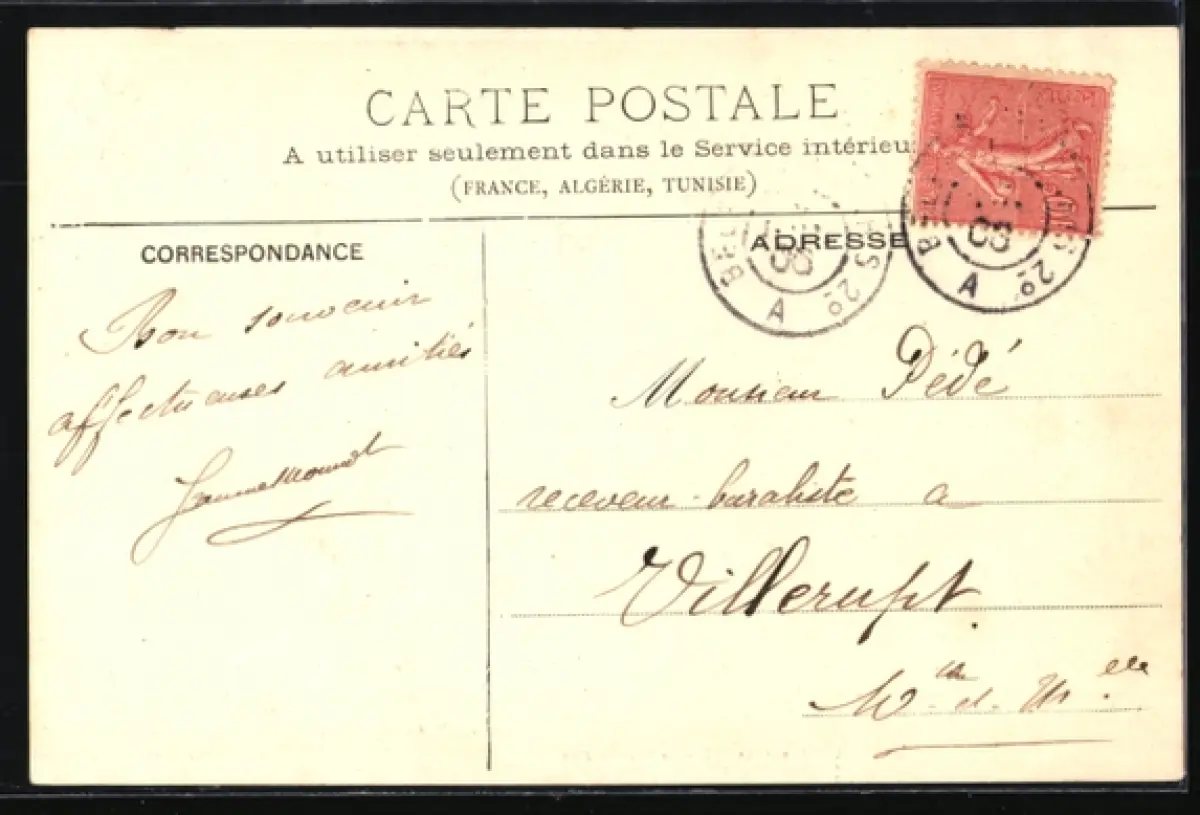 CARTE POSTALE
A utiliser seulement dans le Service intérieu
(FRANCE, ALGÉRIE, TUNISIE)
CORRESPONDANCE
Bon souvenir
affectueuses amitiés
ADRESSE
A 2º
A 2º
Monsieur Dédé
receveur-buraliste a
Villerupt.
Mthe et Mlle